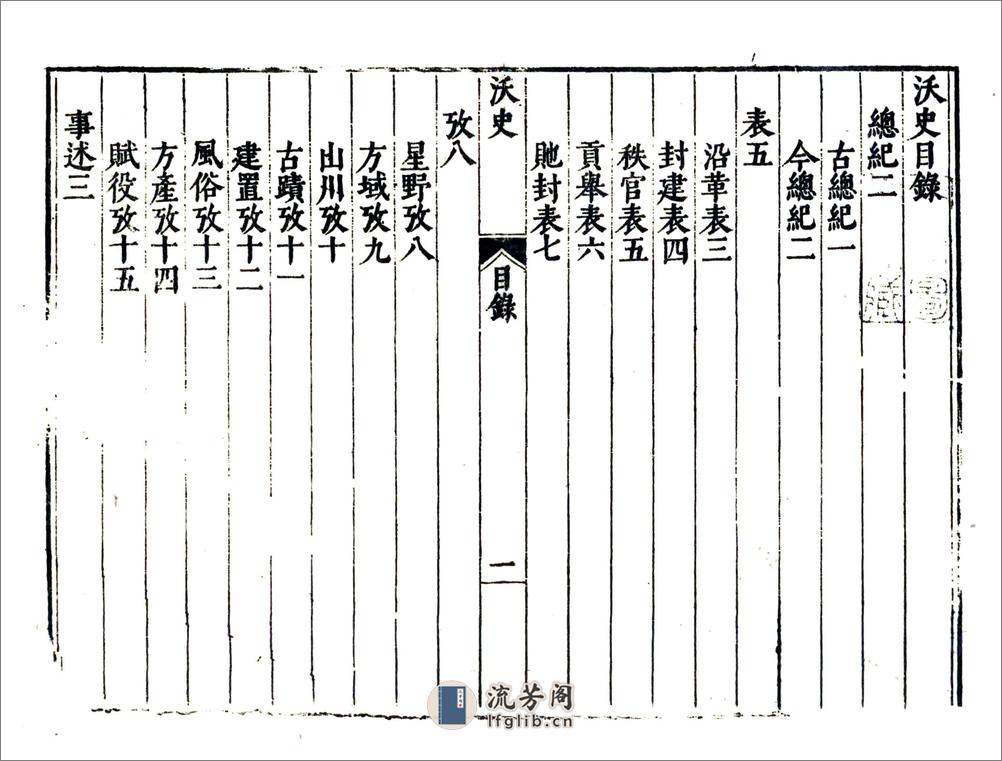 沃史目錄
總紀二
古總紀一
今總紀二
表五
沿革表三
封建表四
秩官表五
貢舉表六
貤封表七
沃史
目錄
一
攷八
星野攷八
方域攷九
山川攷十
古蹟攷十一
建置攷十二
風俗攷十三
方產攷十四
賦役攷十五
事述三
流芳阁
lfglib.cn